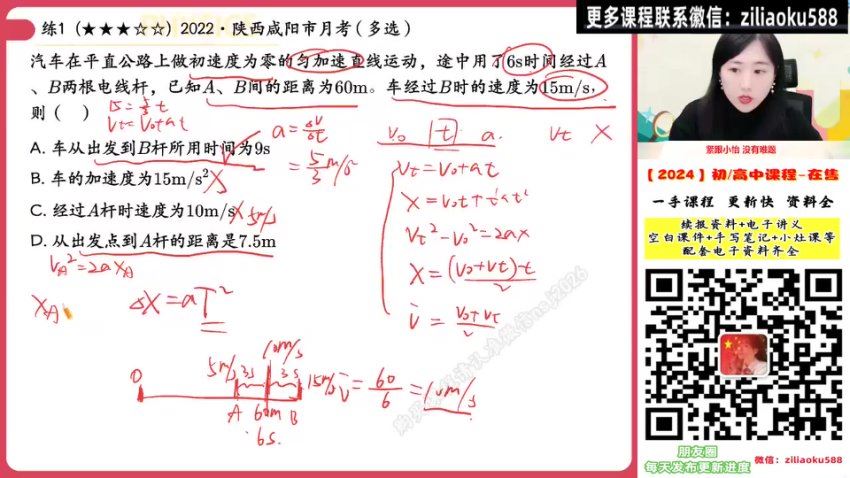 更多课程联系微信：ziliaoku588
练1（★★★☆☆）2022·陕西咸阳市月考（多选）
汽车在平直公路上做初速度为零的匀加速直线运动，途中用了6s时间经过A
、B两根电线杆，已知A、B间的距离为60m。车经过B时的速度为15m/s，
则（ ）
A. 车从出发到B杆所用时间为9s
B. 车的加速度为15m/s²
C. 经过A杆时速度为10m/s
D. 从出发点到A杆的距离是7.5m
15=5/3 t
Vt=V0+at
a=ΔV/Δt
=5/3 m/s²
5m/s
V0 t a Vt X
Vt=V0+at
X=V0t+½at²
Vt²-V0²=2ax
X=(V0+Vt)·t/2
V̄=(V0+Vt)/2
VA²=2aXA
XA
ΔX=aT²
10m/s
0 5m/s 3s 3s 15m/s
A 60m B
6s
V̄=60/6=10m/s
紧跟小怡 没有难题
【2024】初/高中课程-在售
一手课程 更新快 资料全
续报资料+电子讲义
空白课件+手写笔记+小灶课等
配套电子资料齐全
朋友圈
每天发布更新进度
微信：ziliaoku588